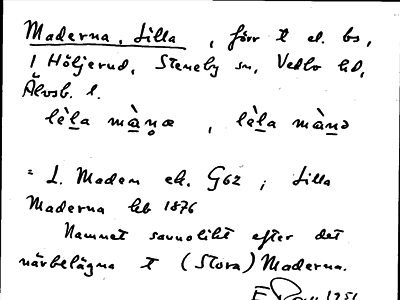 Maderna, Lilla, förr t el. bs,
1 Höljerud, Steneby sn, Vedbo hd,
Älvsb. l.
lèla màṇæ, lèla mànə
= L. Madern ek. G62; Lilla
Maderna hb 1876
Namnet sannolikt efter det
närbelägna t (Stora) Maderna.